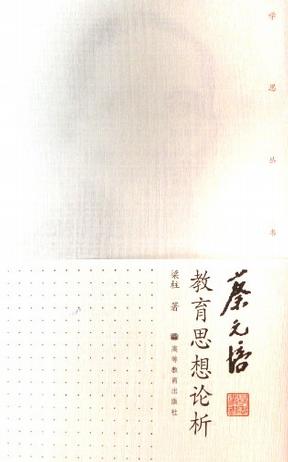 学思丛书
蔡元培
教育思想论析
梁柱 著
高等教育出版社